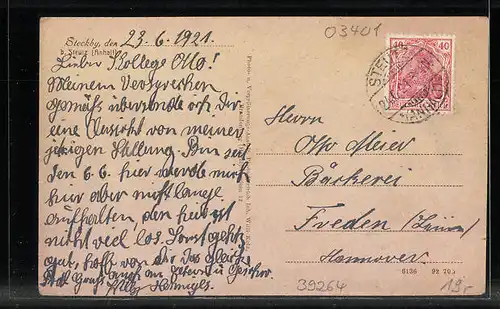 Steckby, den 23.6.1921.
b. Steutz (Anhalt)
Lieber Kollege Otto!
Meinem Versprechen
gemäß übersende ich Dir
eine Ansicht von meiner
jetzigen Stellung. Bin seit
den 6.6. hier werde mich
hier aber nicht lange
aufhalten, den hier ist
nicht viel los. Sonst geht
gut, hoffe von Dir das Gleiche
Gruß auch an
Willy
03401
40
STEUTZ
(ANHALT)
Herrn
Otto Meser
Bäckerei
Freden (Leine)
Hannover
39264
6126 92 703
19,-